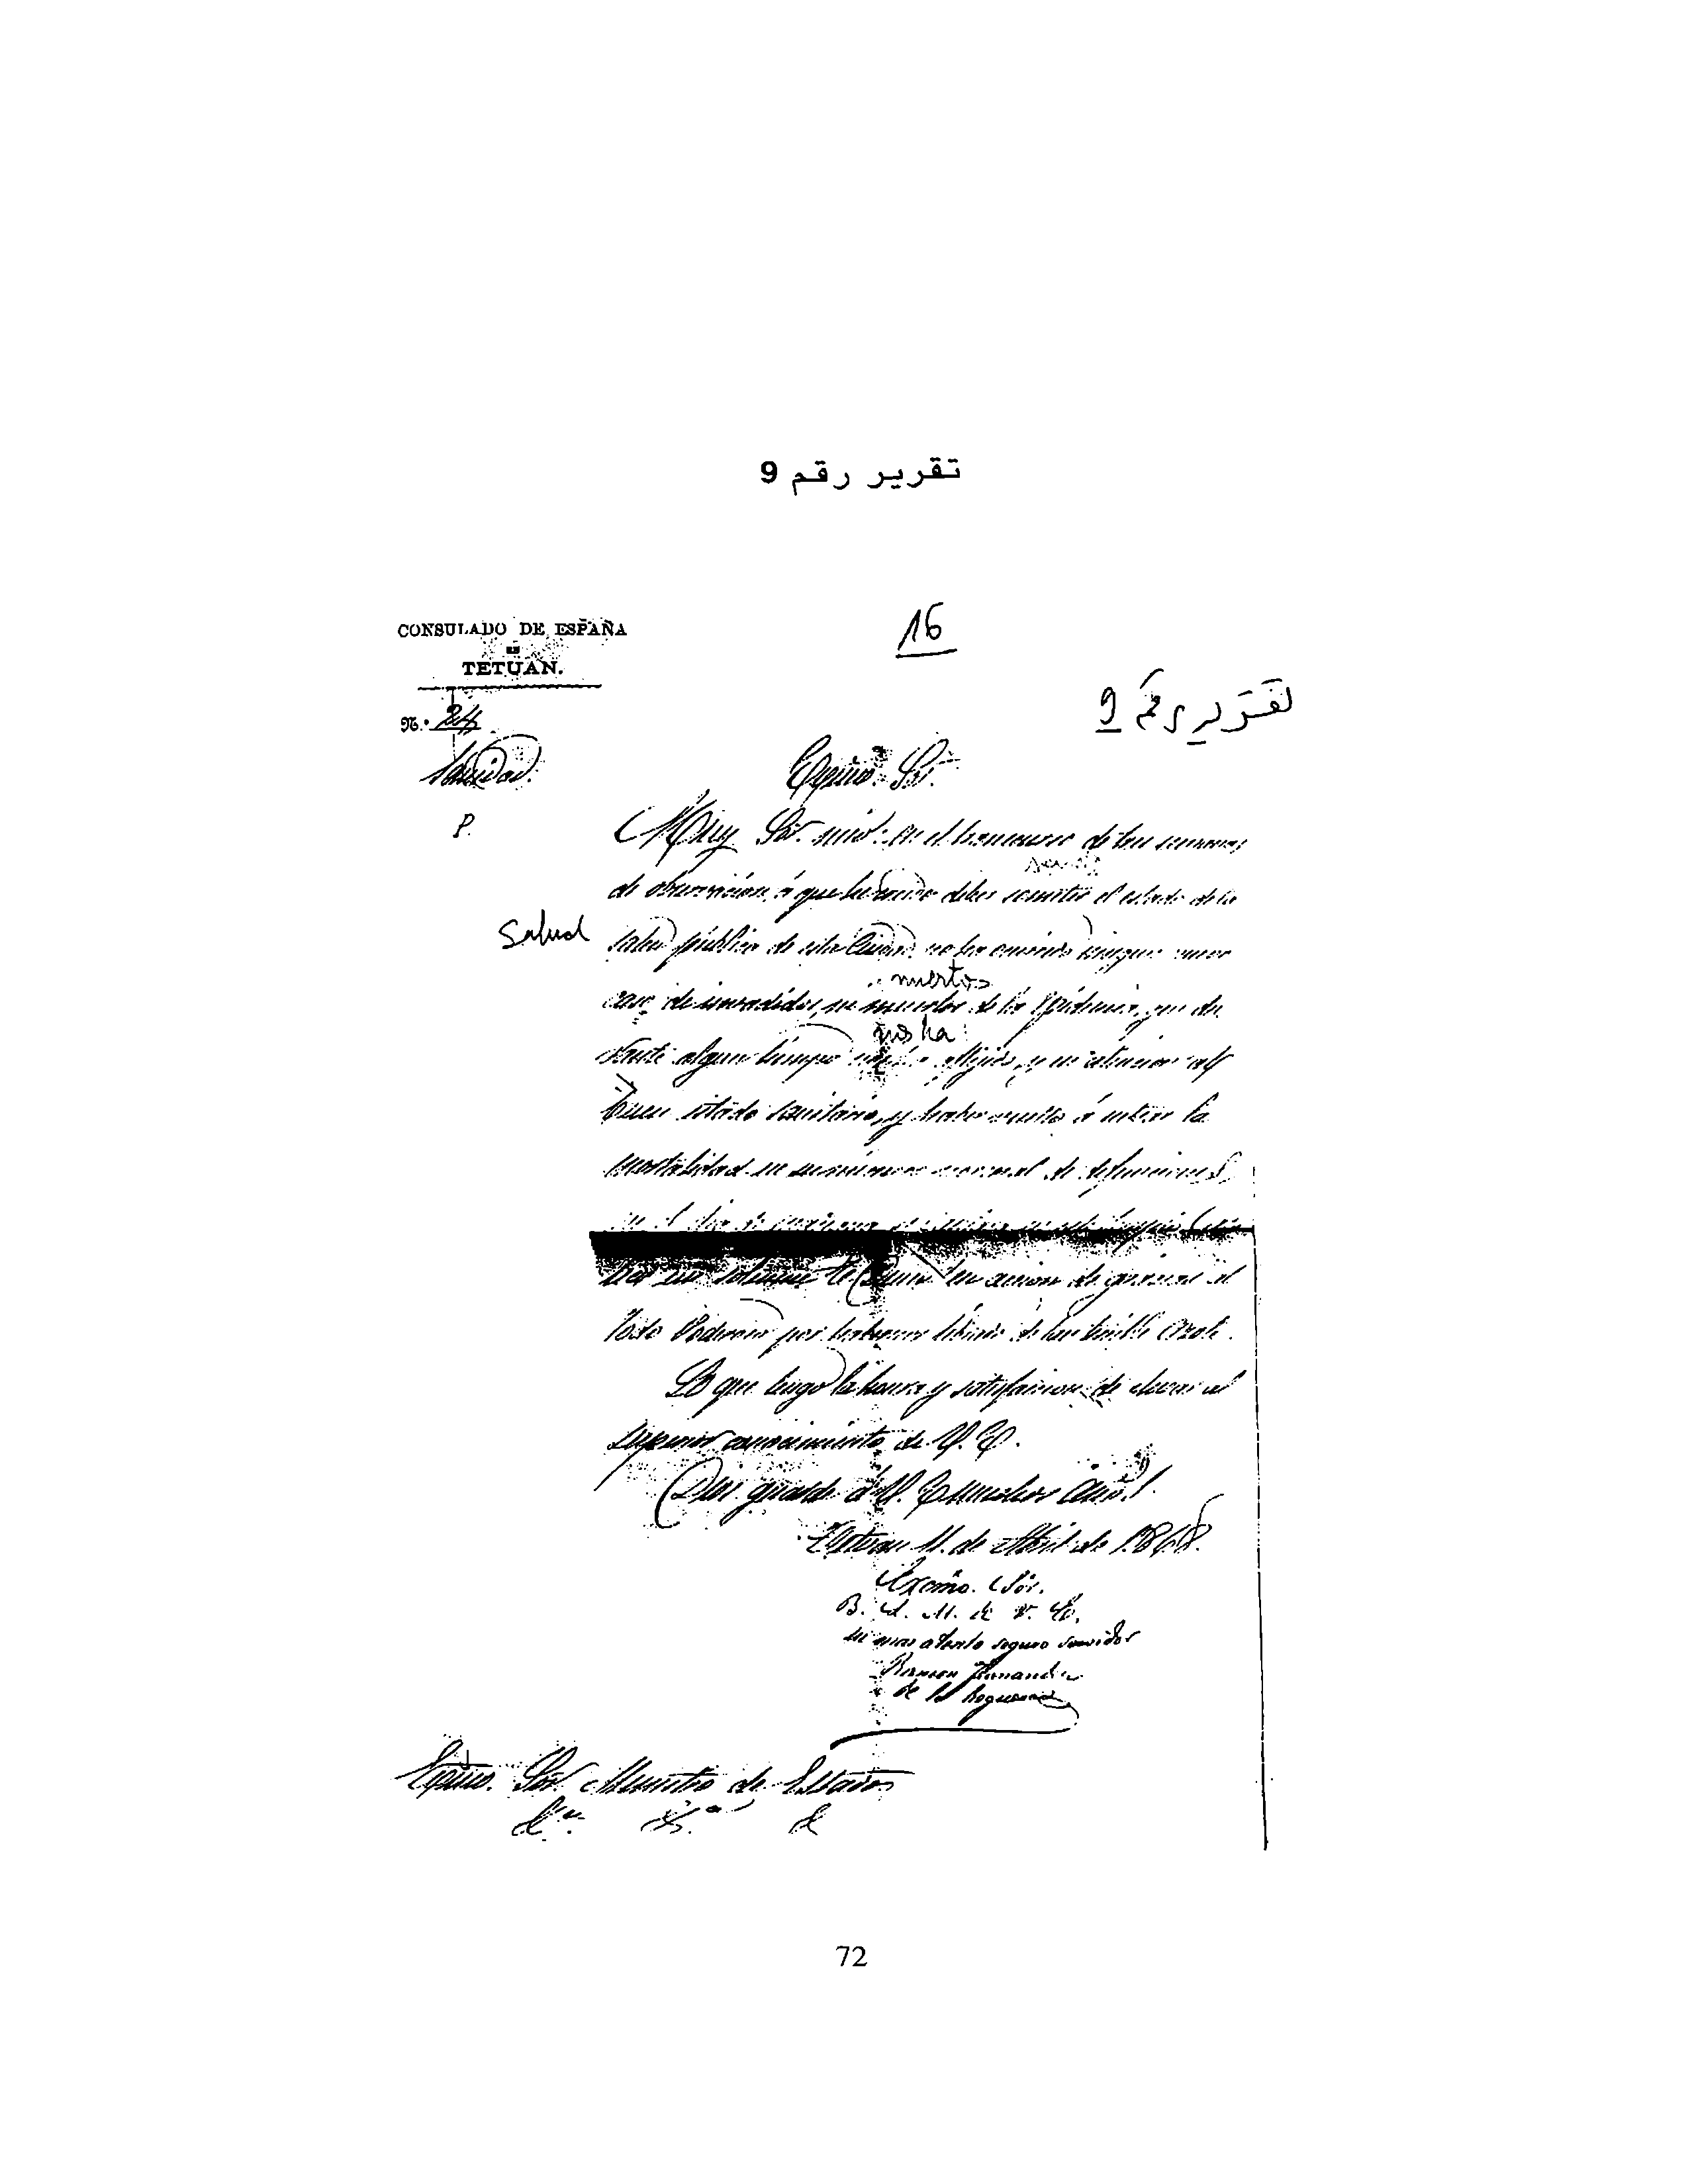 تقرير رقم 9
16
CONSULADO DE ESPAÑA
EN
TETUAN.
تقرير رقم 9
N.º 24
Sanidad.
Exmo. Sor.
P.
Muy Sor. mio: en el transcurso de tres semanas
de observacion, á que he creido deber someter el estado de la
Salud
salud pública de esta Ciudad no ha ocurrido ningun nuevo
muertos
caso de invadidos, ni muertos de la Epidemia, que du
que ha
rante algun tiempo afligido, y en atencion al
buen estado sanitario, y haber vuelto á entrar la
mortalidad en su número normal de defunciones,
en el dia de
un solemne Te Deum en accion de gracias al
Todo Poderoso por habernos librado de tan terrible azote.
Lo que tengo la honra y satisfaccion de elevar al
superior conocimiento de V. E.
Dios guarde á V. E. muchos años.
Tetuan 11 de Abril de 1868.
Excmo. Sor.
B. L. M. de V. E.
su mas atento seguro servidor
Ramon Fernandez
de la Reguera
Exmo. Sor. Ministro de Estado
72